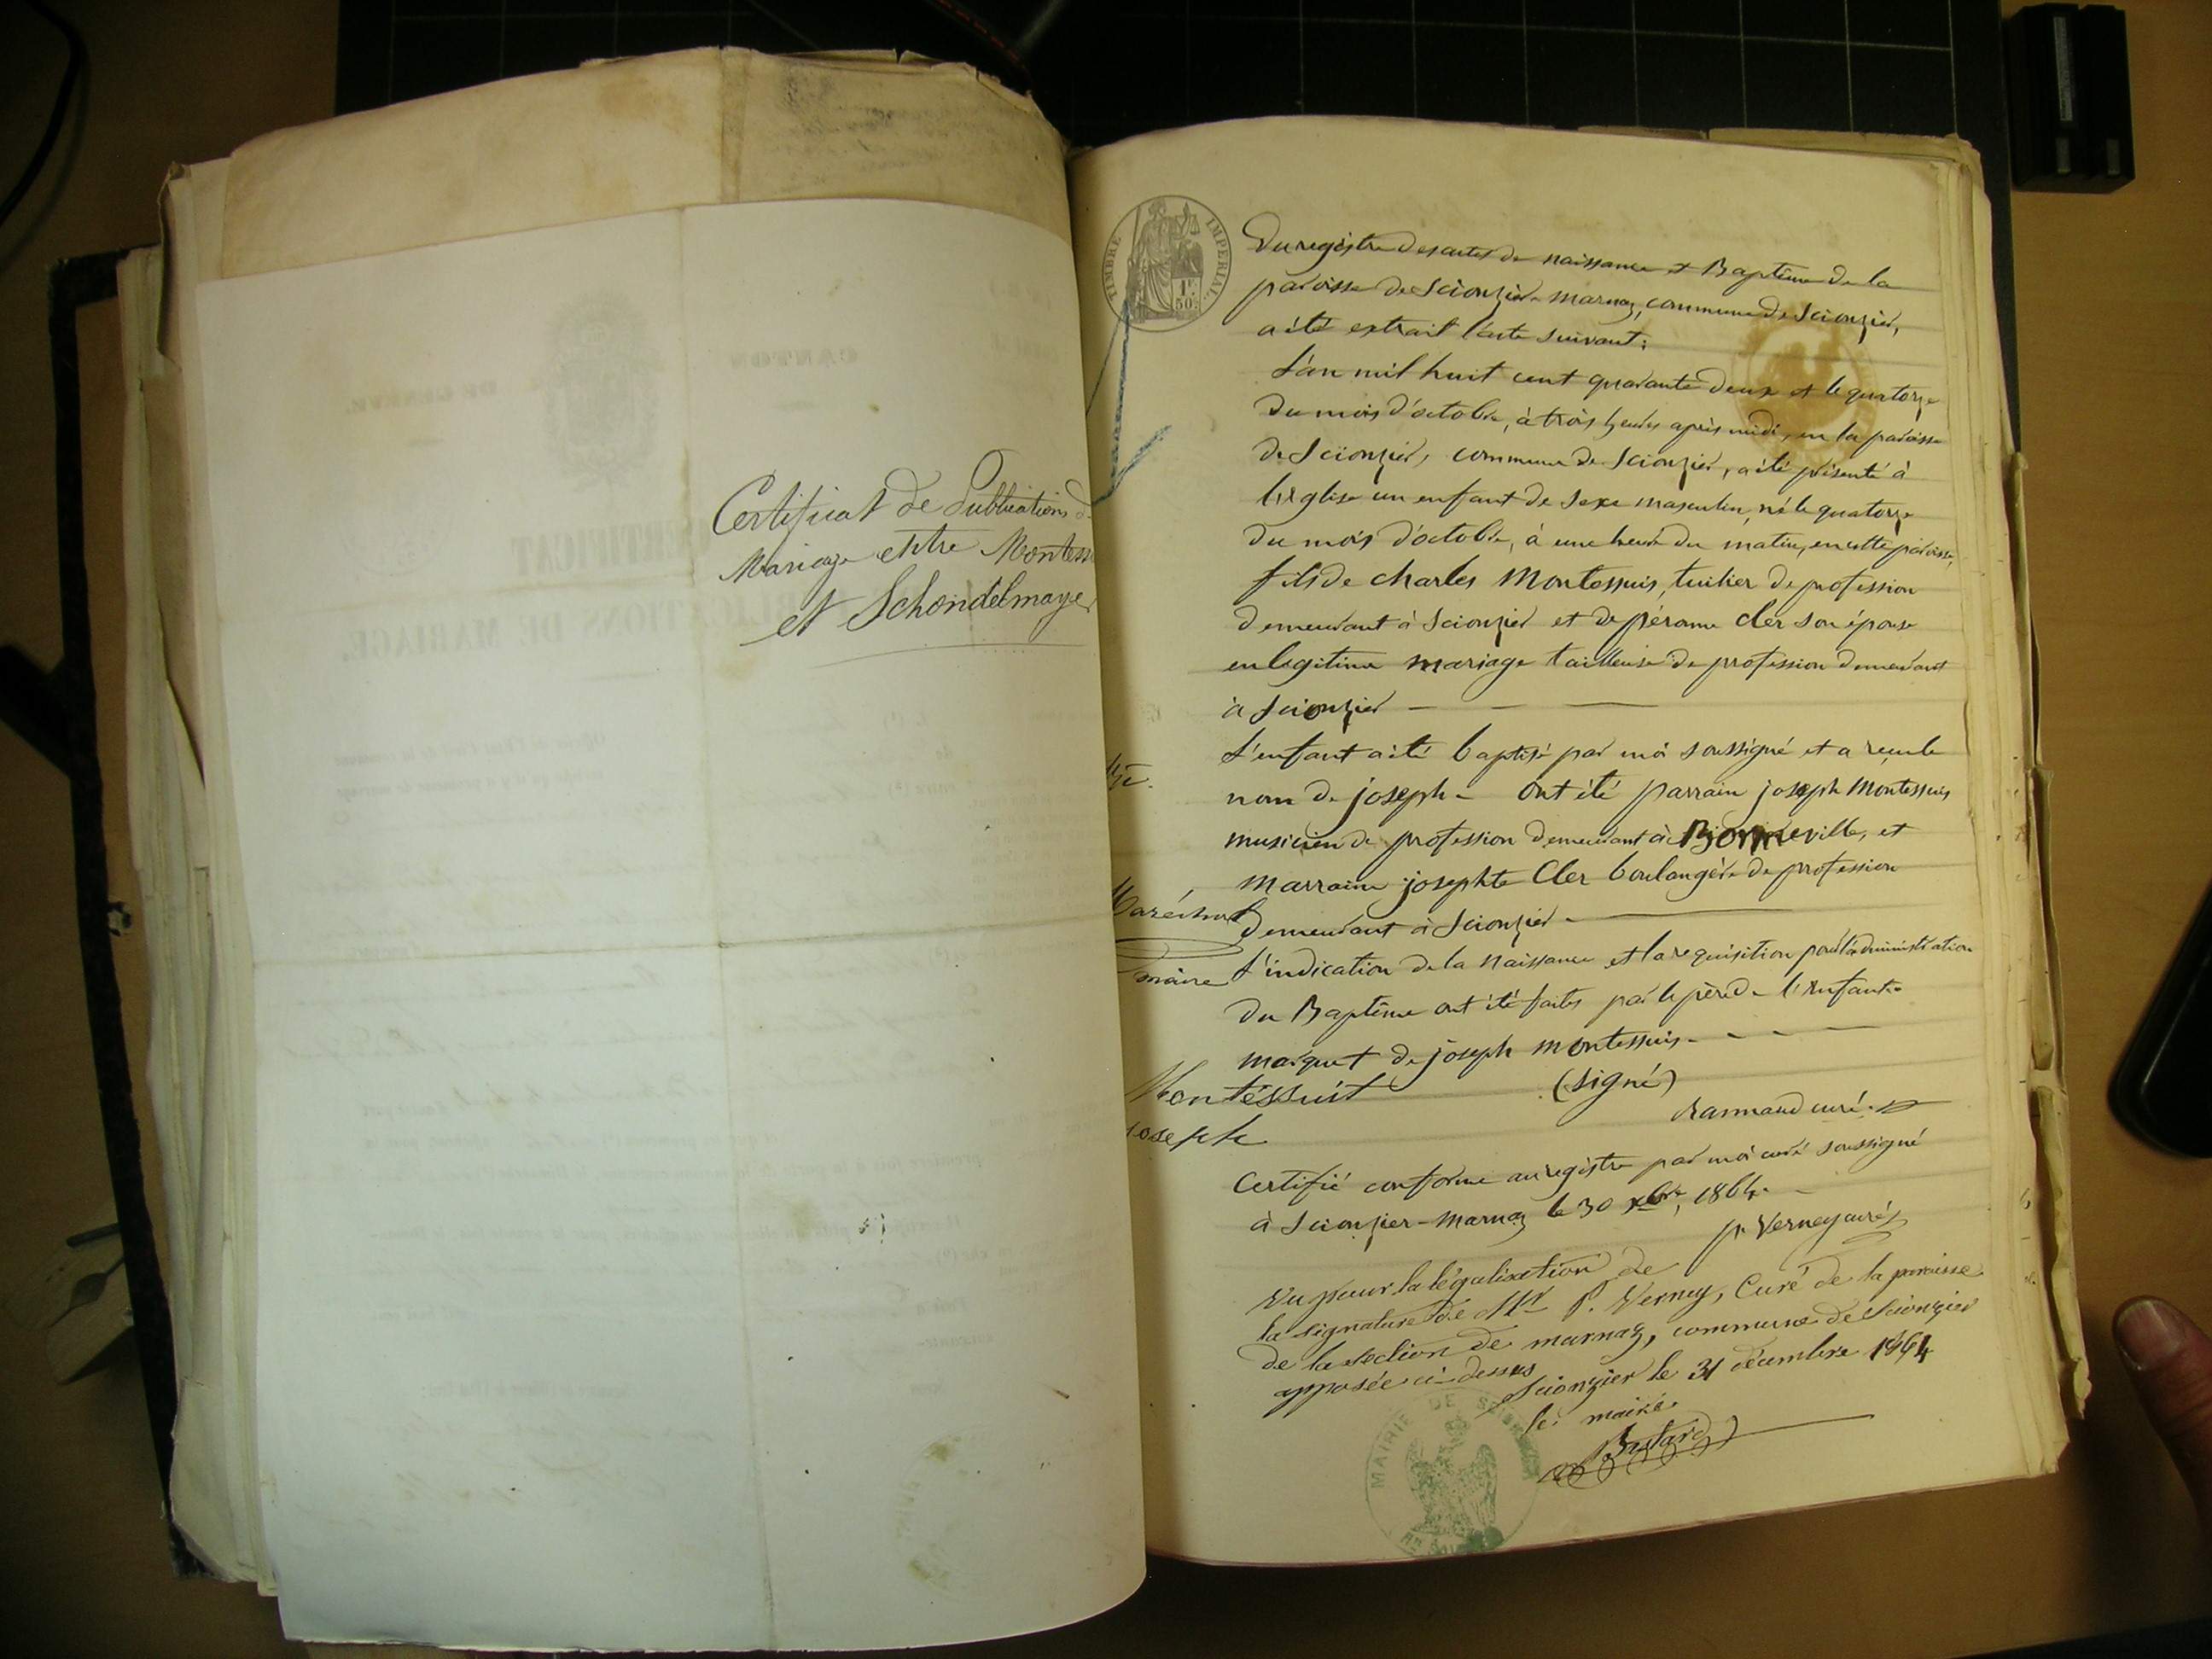 Certificat de Publications de
Mariage entre Montess
et Schondelmayer
TIMBRE IMPERIAL
1F.
50c.
Du registre des actes de naissance et Baptême de la
paroisse de Scionzier-marnaz, commune de Scionzier,
a été extrait l'acte suivant:
L'an mil huit cent quarante deux et le quatorze
du mois d'octobre, à trois heures après midi, en la paroisse
de Scionzier, commune de Scionzier, a été présenté à
l'Eglise un enfant de sexe masculin, né le quatorze
du mois d'octobre, à une heure du matin, en cette paroisse,
fils de charles Montessuis, tuilier de profession
demeurant à Scionzier et de pérome Cler son épouse
en légitime mariage tailleuse de profession demeurant
à Scionzier
L'enfant a été baptisé par moi soussigné et a reçu le
nom de joseph - ont été parrain joseph Montessuis
musicien de profession demeurant à Bonneville, et
marraine josephte Cler boulangère de profession
Maréchal
demeurant à Scionzier -
maire
L'indication de la naissance et la requisition pour l'administration
du Baptême ont été faites par le père de l'Enfant.
marque + de joseph montessuis -
Montéssuit
(signé)
joseph
curé.
Certifié conforme au registre par moi curé soussigné
à Scionzier-Marnaz le 30 xbre, 1864.
p. Verney curé
Vu pour la légalisation de
la signature de Mr P. Verney, Curé de la paroisse
de la section de marnaz, commune de Scionzier
apposée ci-dessus
Scionzier le 31 décembre 1864
le maire.
Bastard
MAIRIE DE